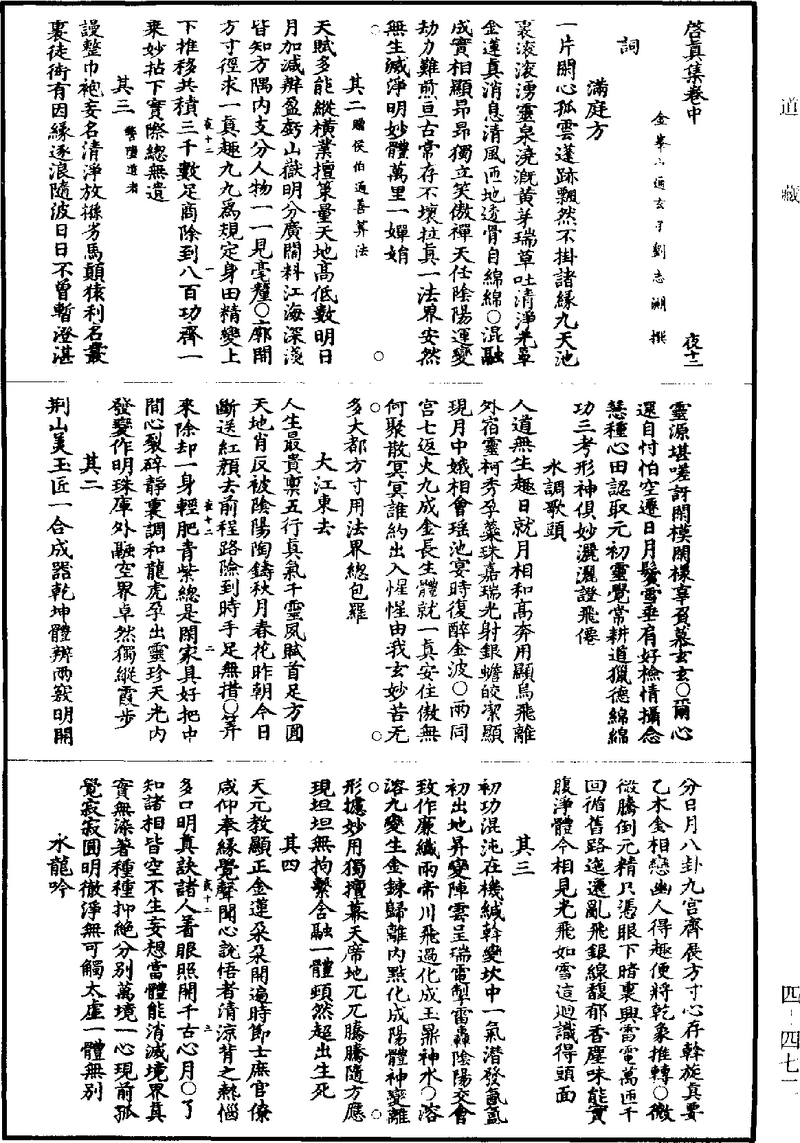 道藏
四-四七一
啓真集卷中
夜十二
金峯山通玄子劉志淵撰
詞
滿庭方
一片閑心孤雲蓬跡飄然不掛諸緣九天池
裏滚滚湧靈泉澆溉黄芽瑞草吐清淨光草
金蓮真消息清風匝地透骨自綿綿○混融
成實相顯昻昻獨立笑傲禪天任陰陽運變
劫力難煎亘古常存不壞拉真一法界安然
無生滅淨明妙體萬里一嬋娟
其二贈侯伯通善算法
天賦多能縱横業擅筭量天地髙低數明日
月加減辨盈虧山嶽明分廣闊料江海深淺
皆知方隅内支分人物一一見毫釐○廓開
方寸徑求一真趣九九爲規定身田精變上
下推移共積三千數足商除到八百功齊一
乘妙拈下實際總無遺
其三繁陸道者
謾整巾袍妄名清淨放猻劣馬顛猿利名叢
裏徒衒有因緣逐浪隨波日日不曾暫澄湛
靈源堪嗟訝閑模閑樣享負慕玄玄○爾心
還自忖怕空遷日月鬢雪垂肩好檢情攝念
慧種心田認取元初靈覺常耕道獵德綿綿
功三考形神俱妙灑灑證飛僊
水調歌頭
人道無生趣日就月相和髙奔用顯烏飛離
外宿靈柯秀孕蘂珠嘉瑞光射銀蟾皎潔顯
現月中娥相會瑶池宴時復醉金波○兩同
宫七返火九成金長生體就一真安住傲無
何聚散冥冥誰約出入惺惺由我玄妙苦无
多大都方寸用法界總包羅
大江東去
人生最貴禀五行真氣千靈夙賦首足方圓
天地肖反被陰陽陶鑄秋月春花昨朝今日
斷送紅顔去前程路險到時手足無措○筭
來除却一身輕肥青紫總是閑家具好把中
間心裂碎靜裏調和龍虎孕出靈珍天光内
發變作明珠庫外融空界卓然獨縱霞步
其二
荆山美玉匠一合成器乾坤體辨兩竅明開
分日月八卦九宫齊辰方寸心存幹旋真要
乙木金相戀幽人得趣便將乾象推轉○微
微騰倒元精只憑眼下暗裏興雷電萬匝千
回循舊路迤邐亂飛銀線馥郁香塵味能實
腹淨體今相見光飛如雪這迴識得頭面
其三
初功混沌在機緘幹變坎中一氣潛發氤氲
初出地昇變陣雲呈瑞電掣雷轟陰陽交會
致作廉纖雨常川飛過化成玉鼎神水○溶
溶九變生金鍊歸離内點化成陽體神變離
形攄妙用獨擅幕天席地兀兀騰騰隨方應
現坦坦無拘繫含融一體頸然超出生死
其四
天元教顯正金蓮朶朶開遍時節士庶官僚
咸仰奉緣覺聲聞心說悟者清涼背之熱惱
多口明真訣諸人著眼照開千古心月○了
知諸相皆空不生妄想當體能消滅境界真
實無染著種種抑絶分别萬境一心現前孤
覺寂寂圓明徹淨無可觸太虛一體無别
水龍吟